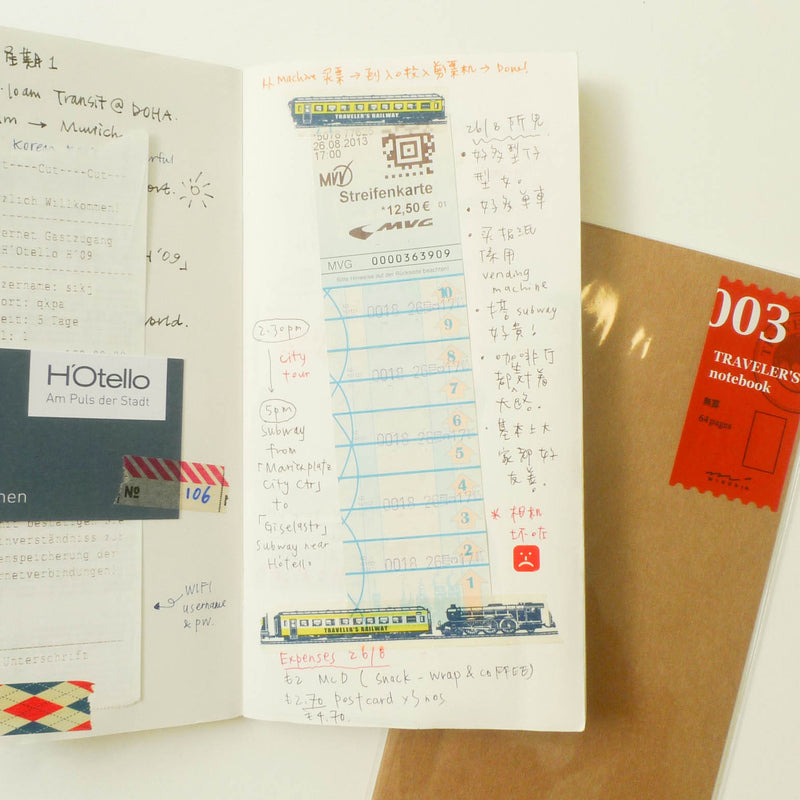 星期1
10am Transit @ DOHA.
→ Munich
Cut----Cut---
Herzlich Willkommen!
Internet Gastzugang
H'Otello H'09
H'09」
Zeit: 5 Tage
world.
H'Otello
Am Puls der Stadt
Nº 106
WIFI
username
& pw.
Unterschrift
从 Machine 买票 → 到入口枚入剪票机 → Done!
TRAVELER'S RAILWAY
26.08.2013
17:00
MVV
Streifenkarte
*12,50€ 01
MVG
MVG 0000363909
(Bitte Hinweise auf der Rückseite beachten!)
10
0018 26
9
8
0018 26
7
6
0018 26
5
4
0018 26
3
2
0018 26
1
TRAVELER'S RAILWAY
2:30pm
↓ city
tour
5pm
Subway
from
「Marienplatz
City Ctr」
to
「Giselastr」
Subway near
Hótello
26/8 所见
• 好多型仔
型女。
• 好多单車
• 买报纸
採用
vending
machine
• 搭 subway
好貴!
• 咖啡厅
都坐对着
大路.
• 基本上大
家都好
友善.
* 相机
坏咗
Expenses 26/8
€2 McD (snack - wrap & COFFEE)
€2.70 postcard x 3 nos
€4.70.
003
TRAVELER'S
notebook
無罫
64 pages
MIDORI